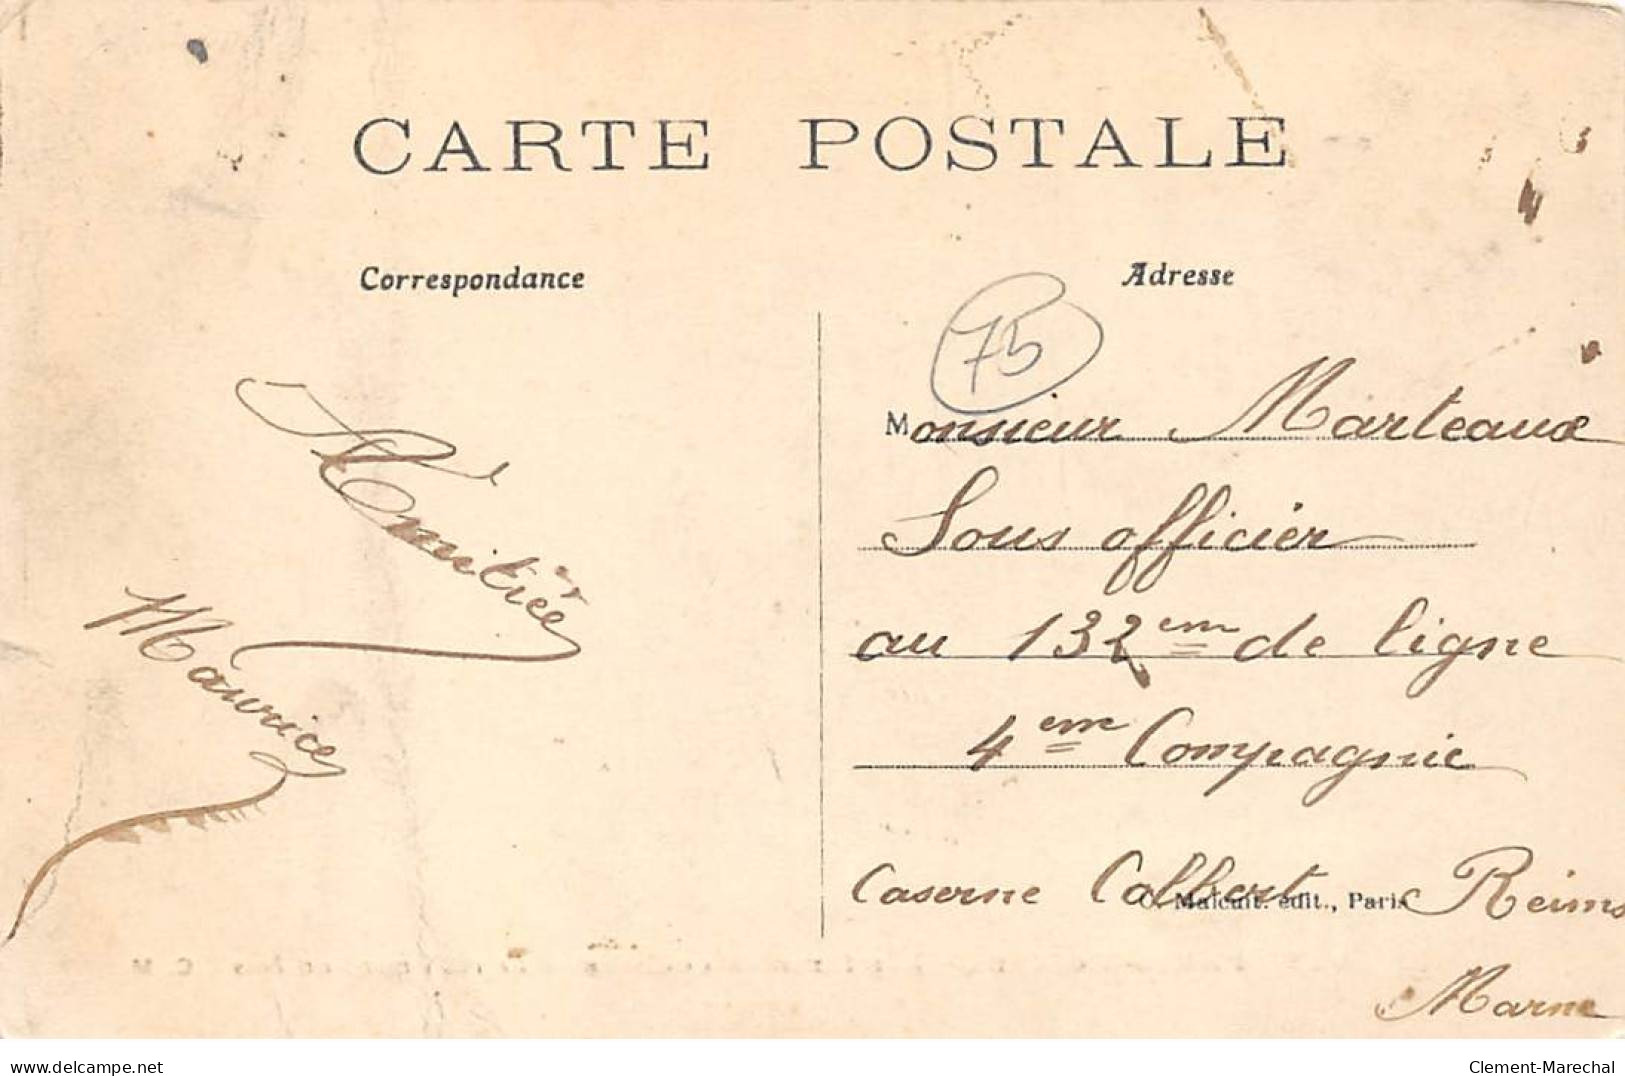 CARTE POSTALE
Correspondance
Amitiée
Maurice
Adresse
75
Monsieur Marteaux
Sous officier
au 132em de ligne
4em Compagnie
Caserne Colbert Reims
C. Malcuit. édit., Paris
Marne
www.delcampe.net
Clement-Marechal